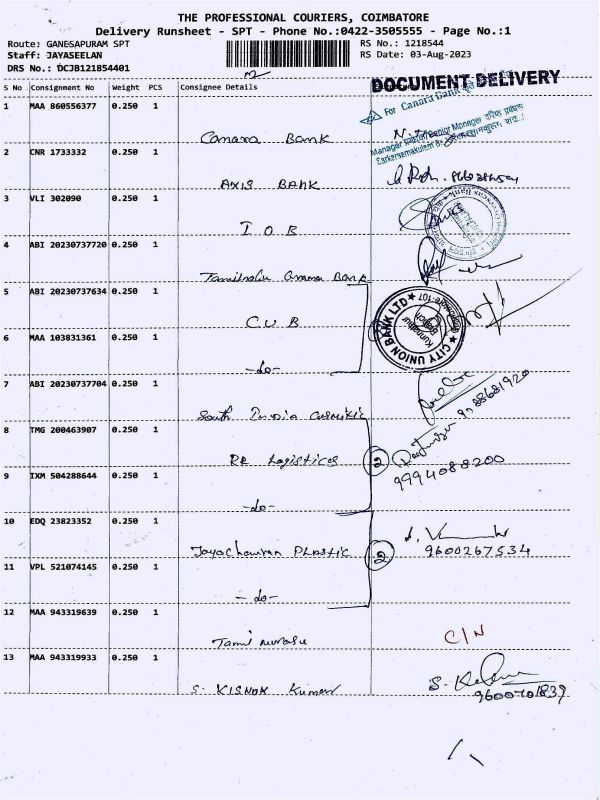 THE PROFESSIONAL COURIERS, COIMBATORE
Delivery Runsheet - SPT - Phone No.:0422-3505555 - Page No.:1
Route: GANESAPURAM SPT RS No.: 1218544
Staff: JAYASEELAN RS Date: 03-Aug-2023
DRS No.: DCJB121854401
DOCUMENT DELIVERY
S No Consignment No Weight PCS Consignee Details
1 MAA 860556377 0.250 1
For Canara Bank
Canara Bank
Manager Senior Manager
2 CNR 1733332 0.250 1
AXIS BANK
3 VLI 302090 0.250 1
I O B
4 ABI 20230737720 0.250 1
Tamilnadu Grama Bank
5 ABI 20230737634 0.250 1
C U B
CITY UNION BANK LTD
6 MAA 103831361 0.250 1
-do-
7 ABI 20230737704 0.250 1
South India Cosmitic
8 TMG 200463907 0.250 1
RR Logistices 2
9994088200
9 IXM 504288644 0.250 1
-do-
10 EDQ 23823352 0.250 1
Jayachandran PLASTIC 2
9600267534
11 VPL 521074145 0.250 1
-do-
12 MAA 943319639 0.250 1
Tamil murasu C/N
13 MAA 943319933 0.250 1
S. KISHOR Kumar